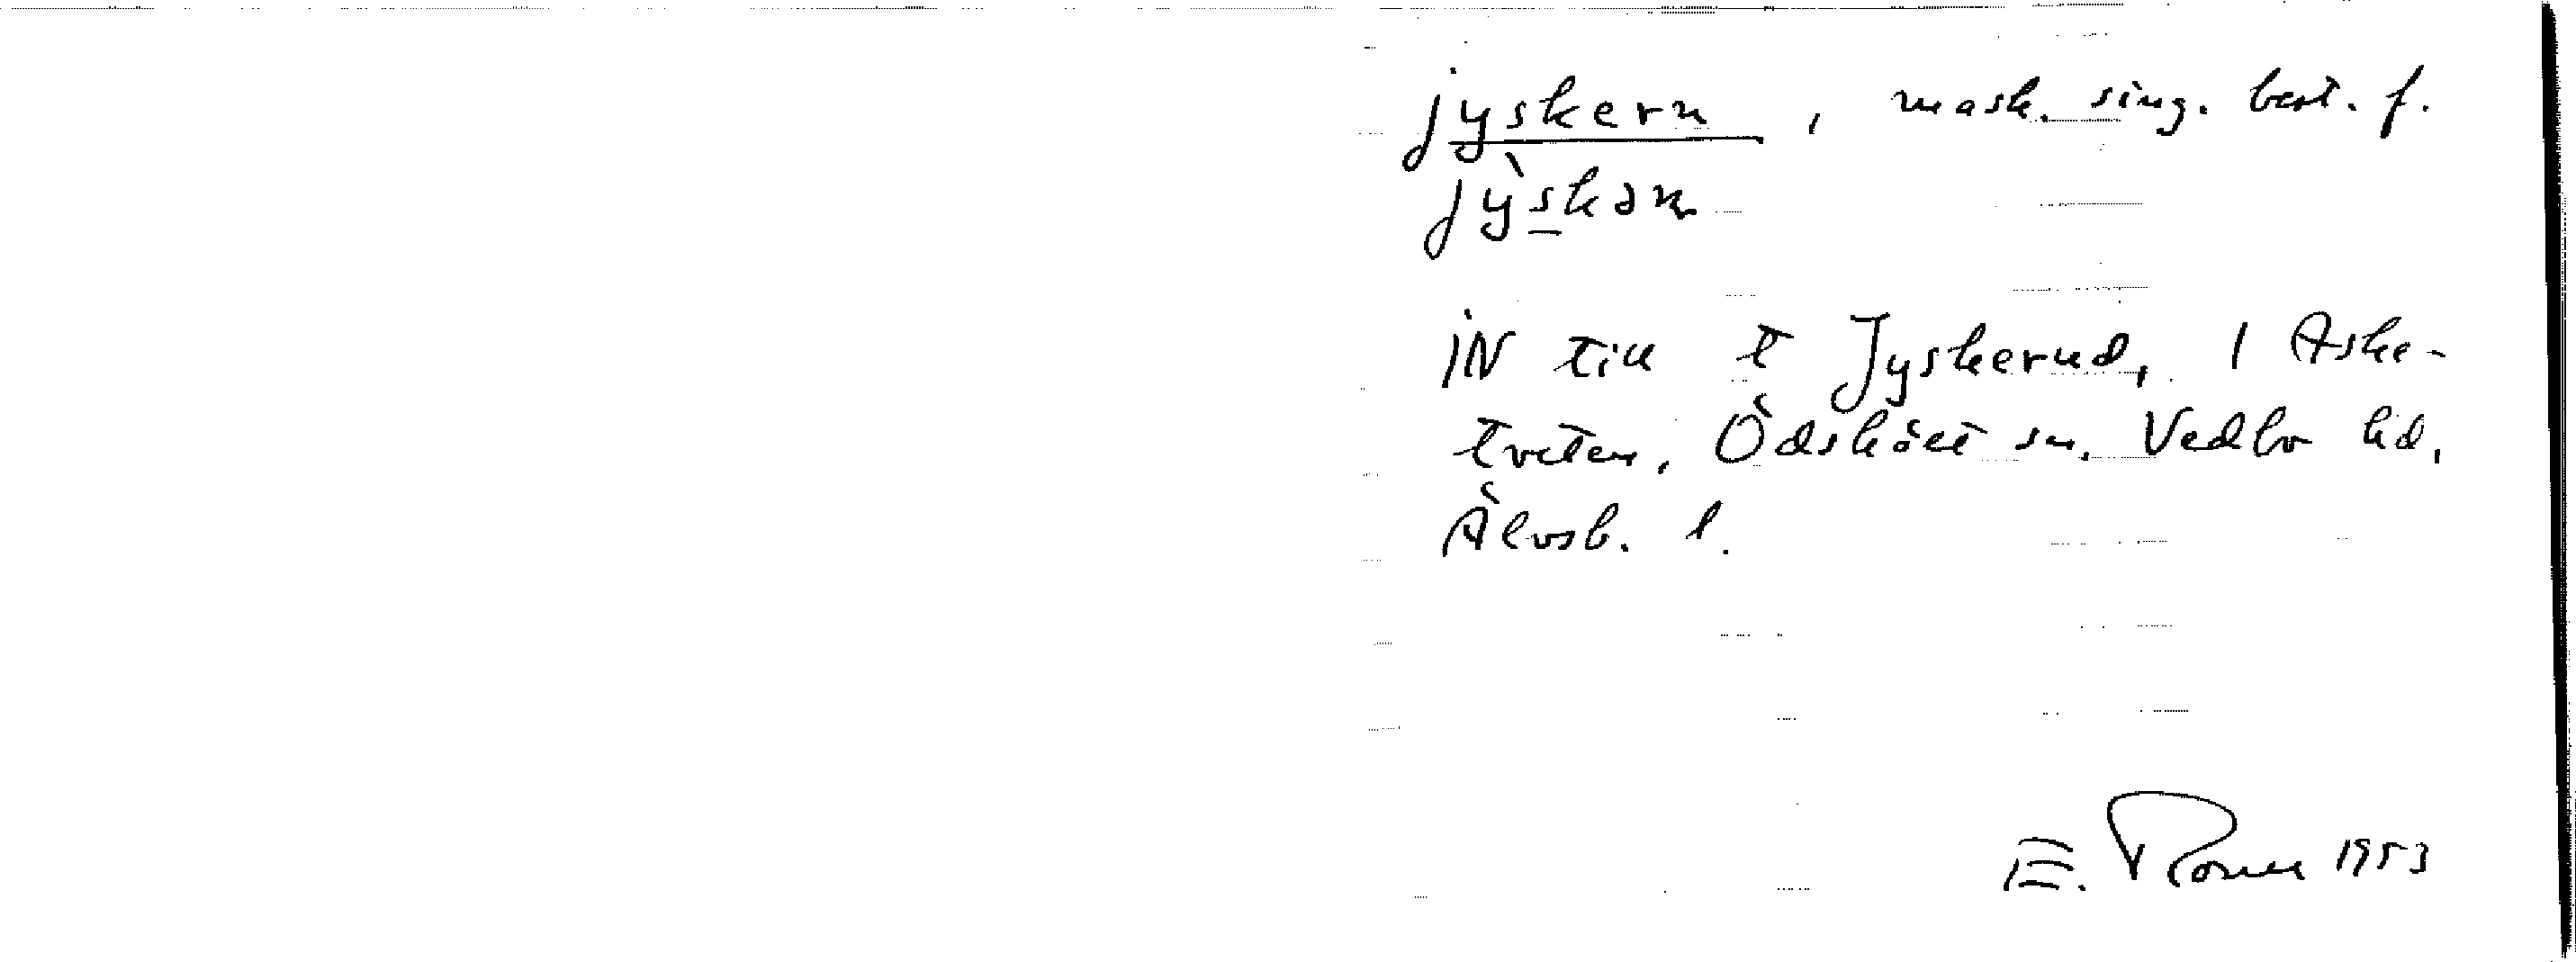 jyskern, mask. sing. best. f.
jỳskəɳ
iN till t Jyskerud, 1 Aske-
tveten, Ödskölt sn. Vedbo hd,
Älvsb. l.
E. 1953